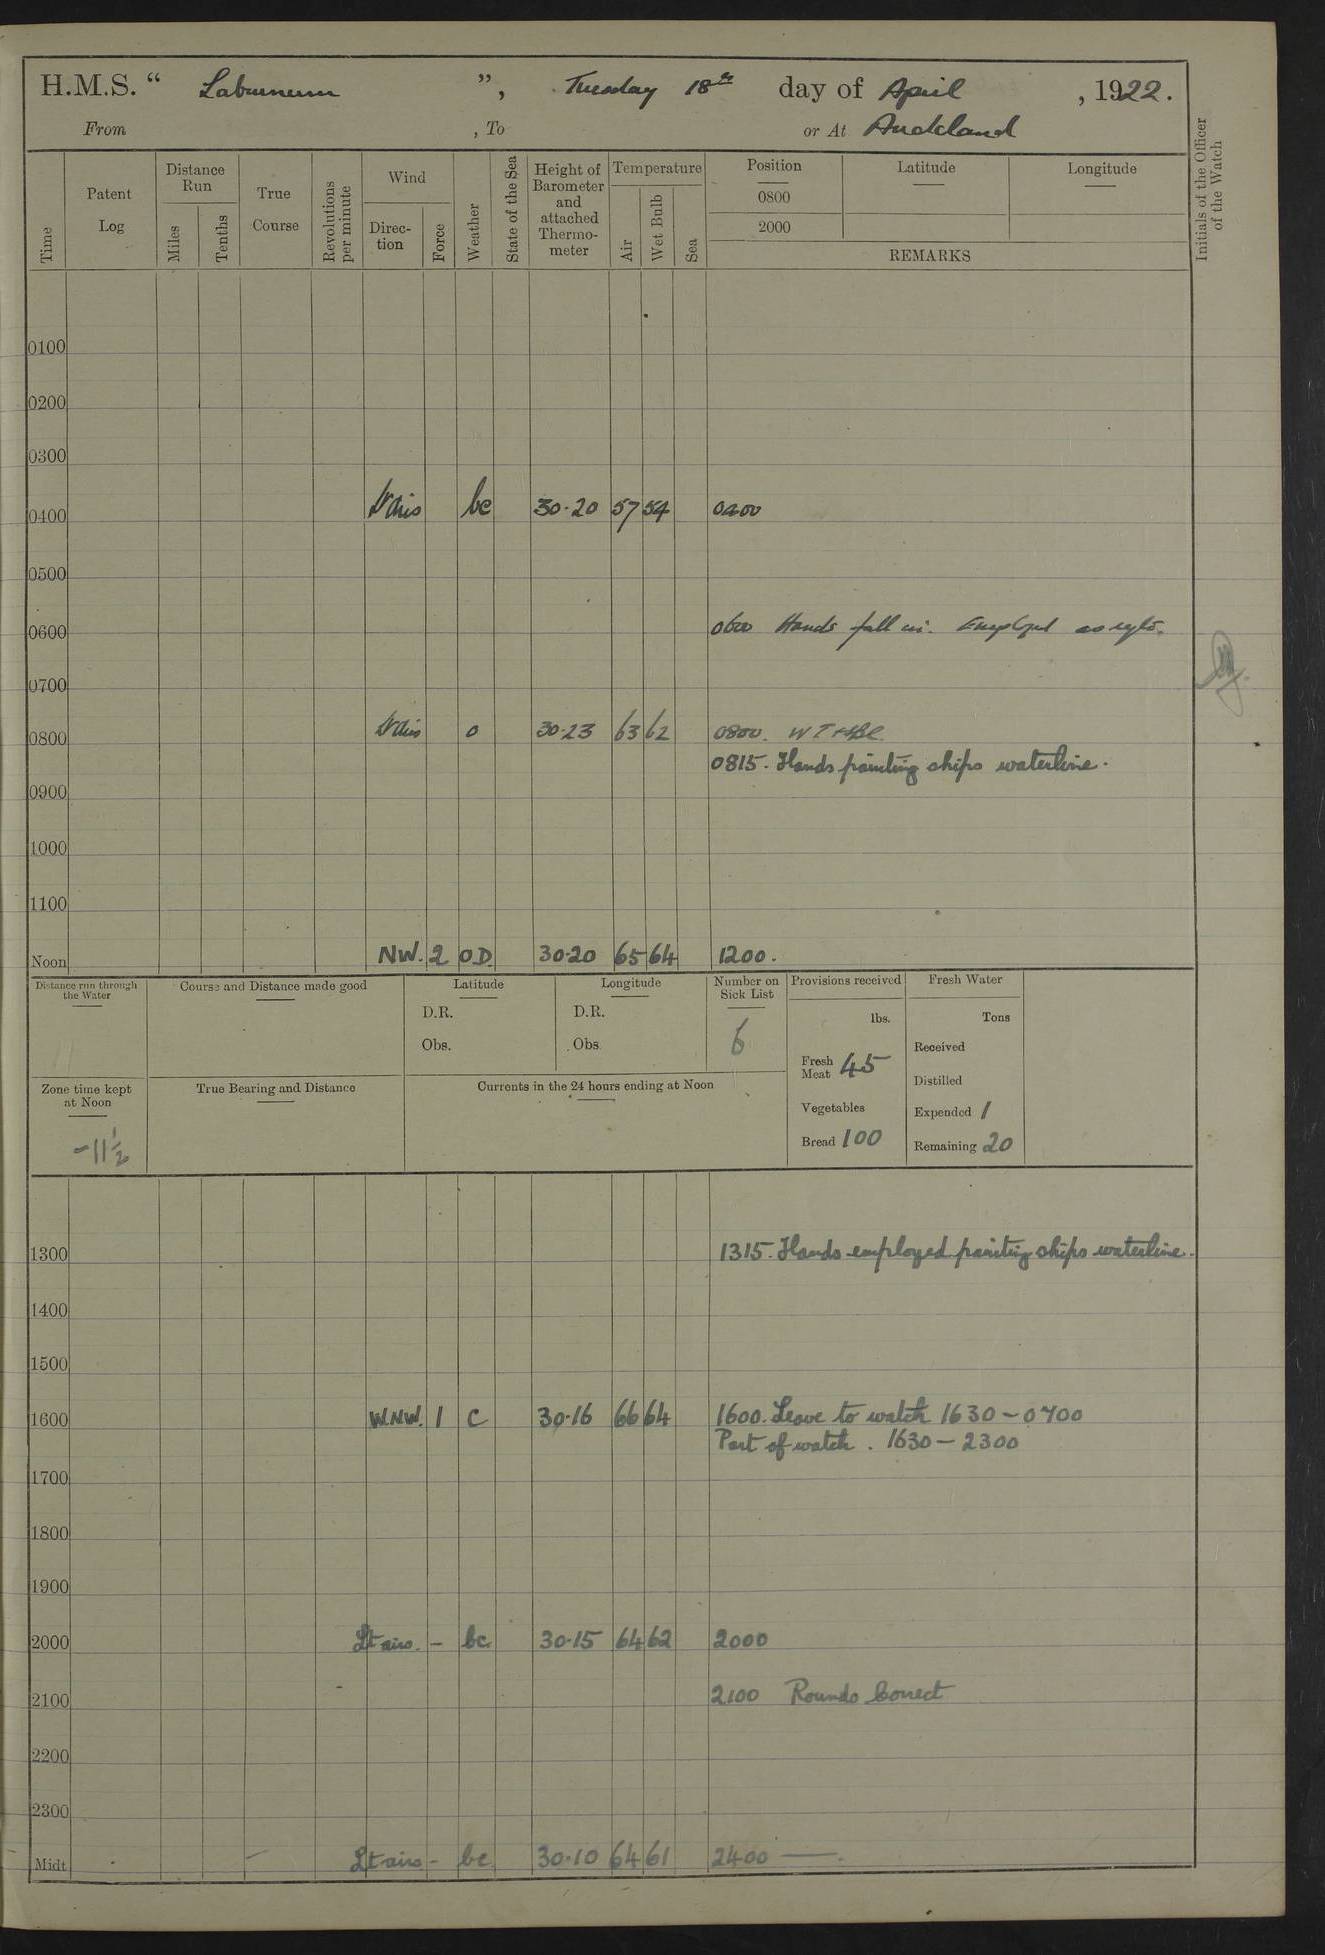 H.M.S. “ Laburnum ”, Tuesday 18th day of April , 1922.
From , To or At Auckland
Time
Patent Log
Distance Run
Miles
Tenths
True Course
Revolutions per minute
Wind
Direc- tion
Force
Weather
State of the Sea
Height of Barometer and attached Thermo- meter
Temperature
Air
Wet Bulb
Sea
Position
0800
2000
Latitude
Longitude
REMARKS
Initials of the Officer of the Watch
0100
0200
0300
0400 Lt airs bc 30·20 57 54 0400
0500
0600 0600 Hands fall in. Employed as reqte.
0700
0800 Lt airs o 30·23 63 62 0800.
0815. Hands painting ships waterline.
0900
1000
1100
Noon NW. 2 OD. 30·20 65 64 1200.
Distance run through the Water
Course and Distance made good
Latitude
D.R.
Obs.
Longitude
D.R.
Obs.
Number on Sick List
6
Provisions received
lbs.
Fresh Meat 45
Vegetables
Bread 100
Fresh Water
Tons
Received
Distilled
Expended 1
Remaining 20
Zone time kept at Noon
-11½
True Bearing and Distance
Currents in the 24 hours ending at Noon
1300 1315. Hands employed painting ships waterline.
1400
1500
1600 W.NW. 1 c 30·16 66 64 1600. Leave to watch 1630 – 0700
Part of watch. 1630 – 2300
1700
1800
1900
2000 Lt airs. – bc 30·15 64 62 2000
2100 2100 Rounds Correct
2200
2300
Midt Lt airs – bc 30·10 64 61 2400 —.